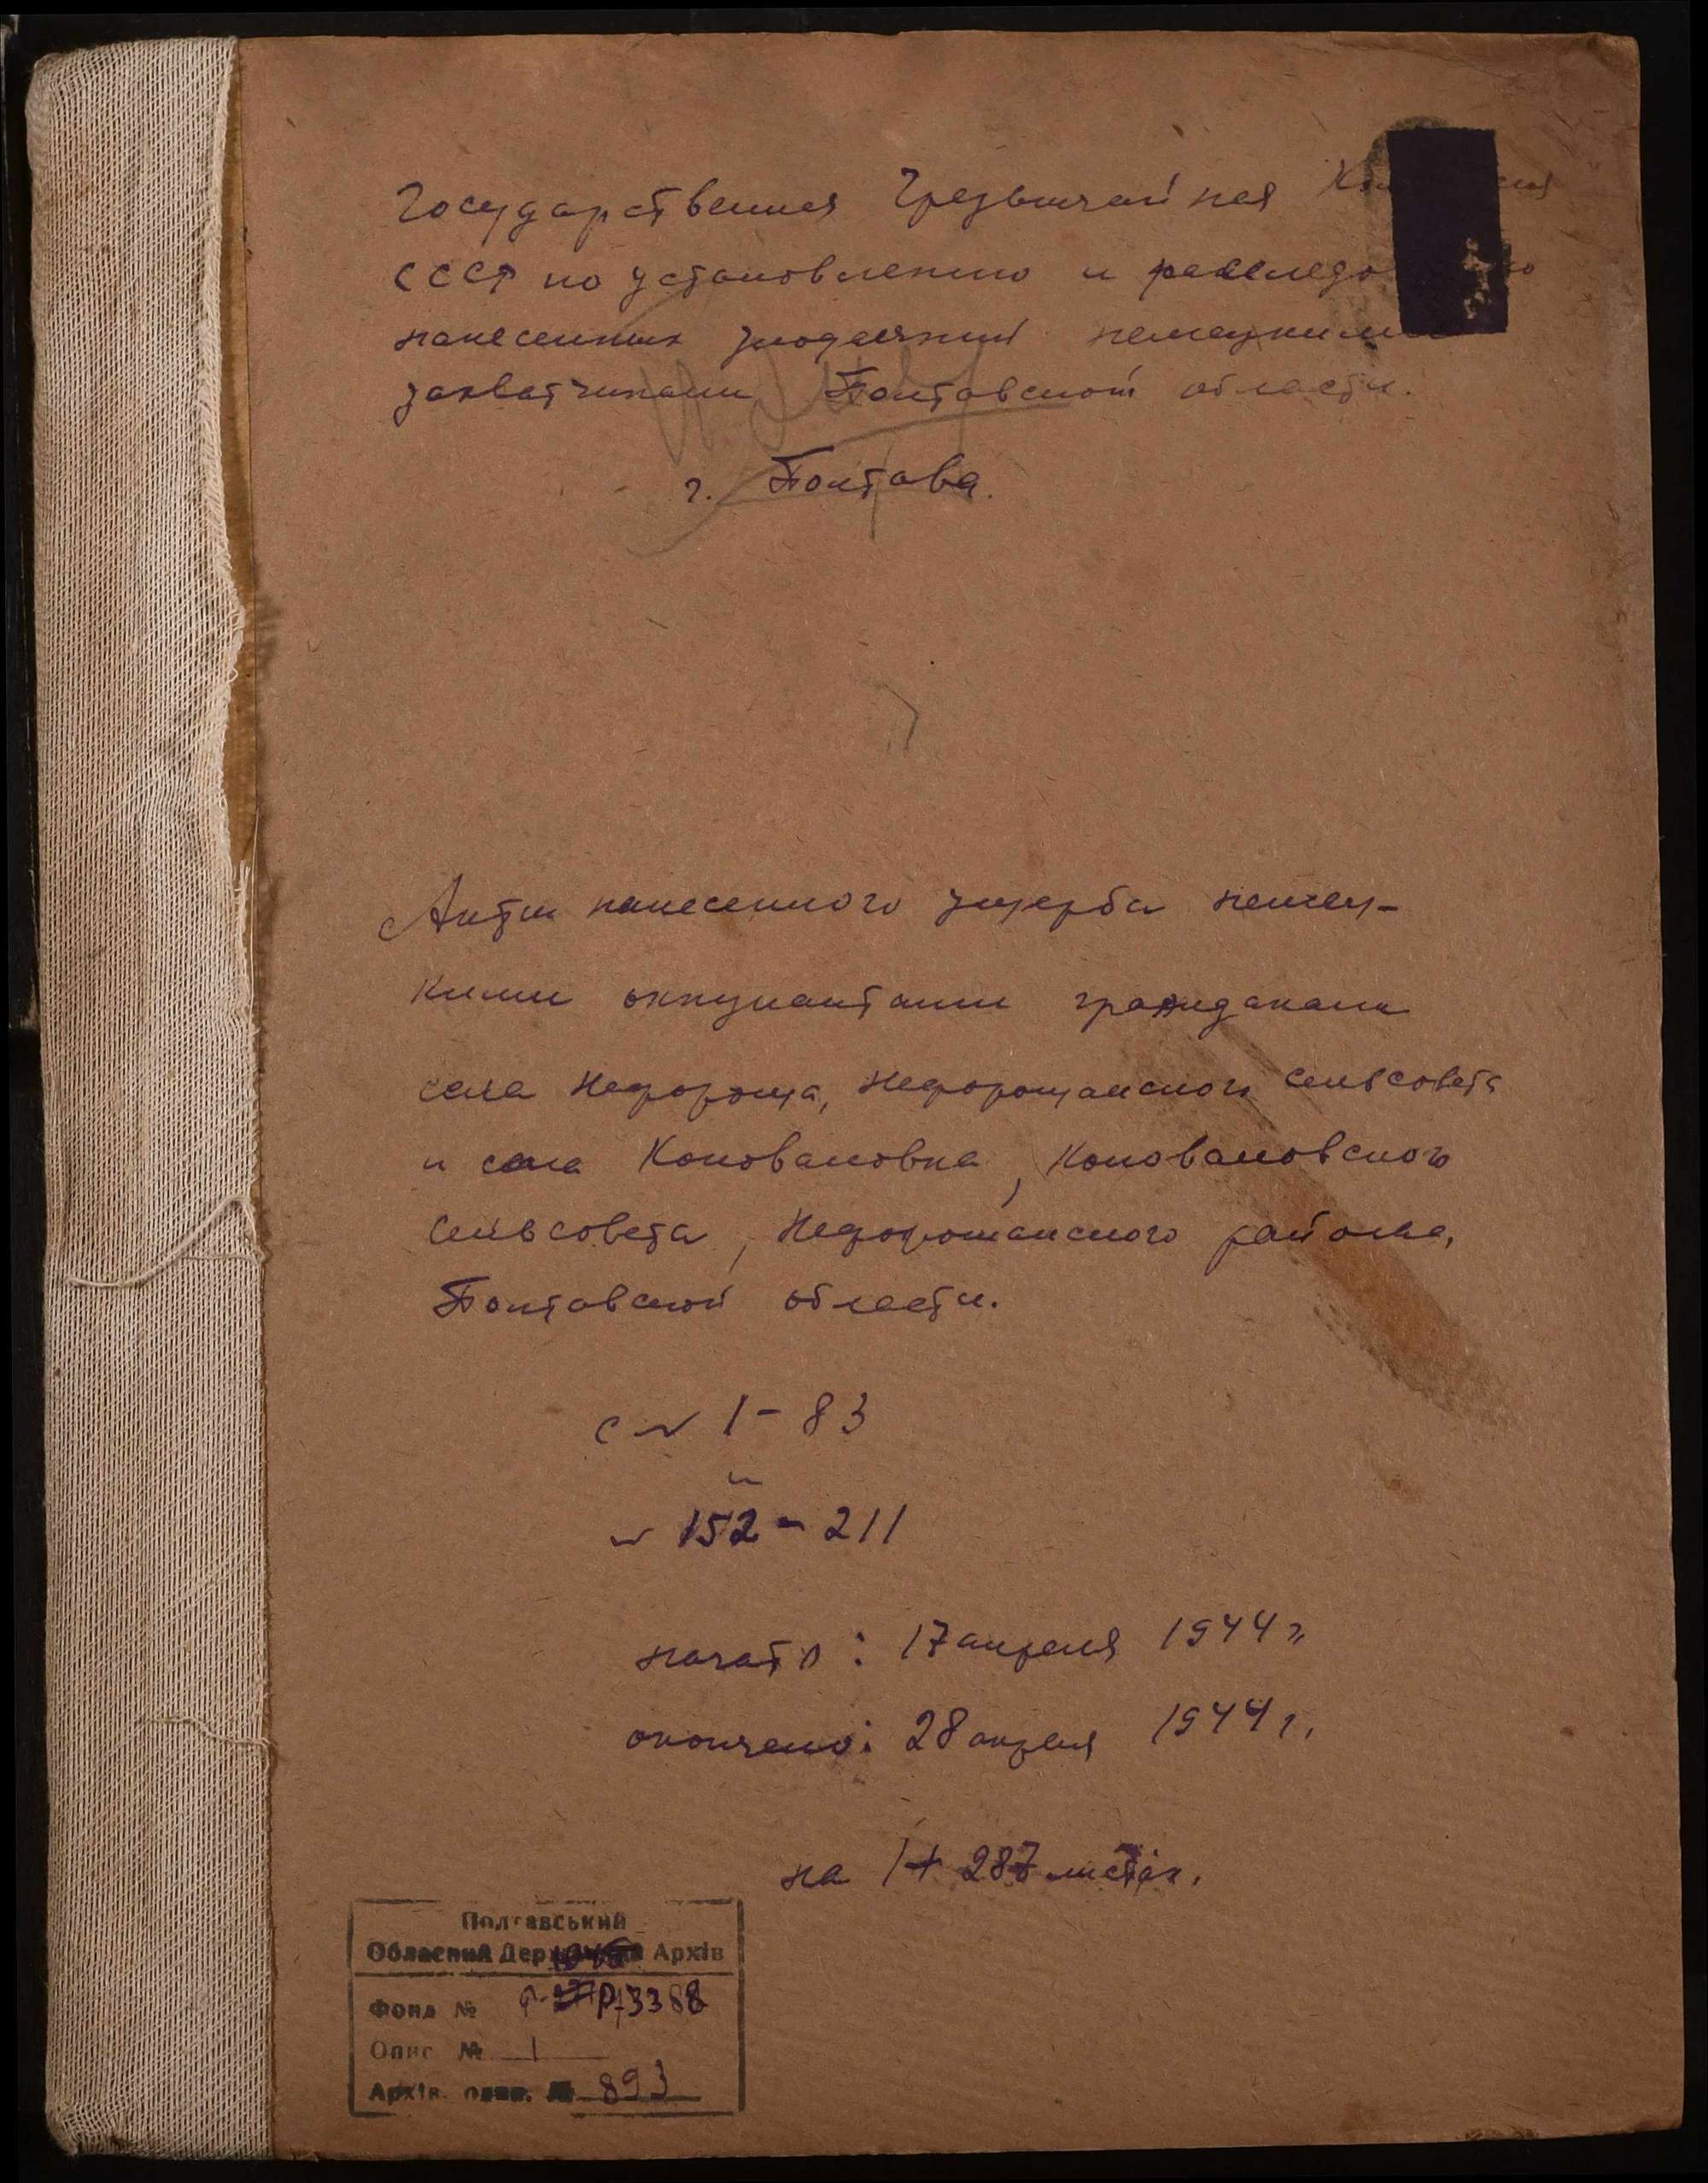 Государственная Чрезвычайная
СССР по установлению и
нанесенных злодеяний немецкими
захватчиками Полтавской области.
г. Полтава.
Акты нанесенного ущерба немец-
кими оккупантами гражданам
села Нехвороща, Нехворощанского сельсовета
и села Коноваловка, Коноваловского
сельсовета, Нехворощанского района,
Полтавской области.
с № 1-83
и
№ 152-211
начато: 17 апреля 1944 г.
окончено: 28 апреля 1944 г.
на 1+ 287 листах.
Полтавський
Обласний Архів
Фонд № Р-3388
Опис № 1
Архів. № 893